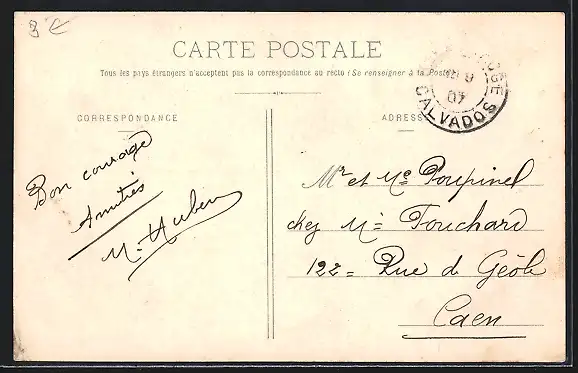 3 €
CARTE POSTALE
Tous les pays étrangers n'acceptent pas la correspondance au recto (Se renseigner à la Poste)
CORRESPONDANCE
ADRESSE
9
07
CALVADOS
Bon courage
Amitiés
M. Huben
Mr et Me Poupinel
chez M. Fouchard
122 = Rue de Geôle
Caen